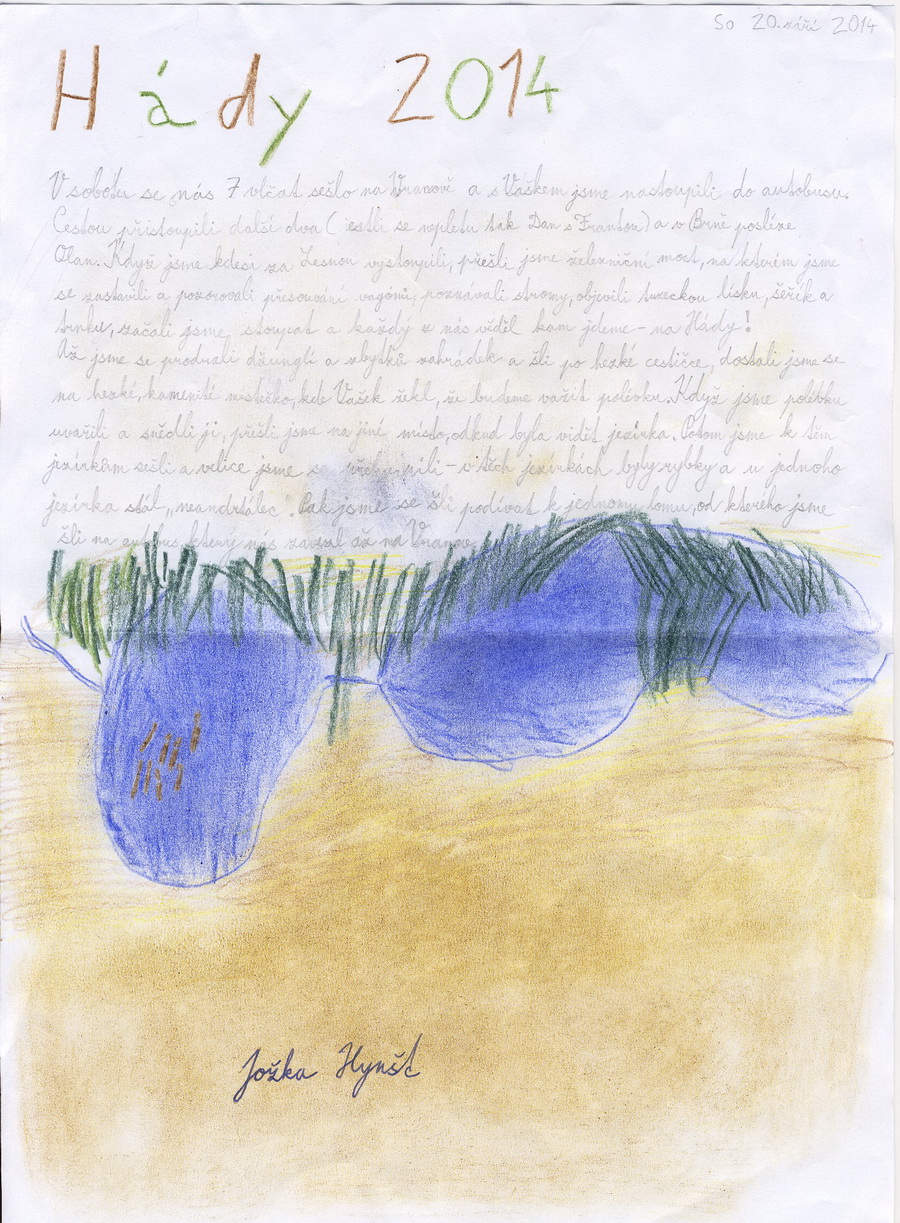 So 20. září 2014
Hády 2014
V sobotu se nás 7 vlčat sešlo na Vranově a s Vaškem jsme nastoupili do autobusu.
Cestou přistoupili další dva (jestli se nepletu tak Dan s Frantou) a v Brně posléze
Olan. Když jsme kdesi za Lesnou vystoupili, přešli jsme železniční most, na kterém jsme
se zastavili a pozorovali přesouvání vagónů, poznávali stromy, objevili tureckou lísku, šeřík a
trnku, začali jsme stoupat a každý z nás věděl kam jdeme - na Hády!
Až jsme se prodrali džunglí a zbytků zahrádek a šli po hezké cestičce, dostali jsme se
na hezké, kamenité místečko, kde Vašek řekl, že budeme vařit polévku. Když jsme polévku
uvařili a snědli ji, přešli jsme na jiné místo, odkud byla vidět jezírka. Potom jsme k těm
jezírkům sešli a velice jsme se - v těch jezírkách byly rybky a u jednoho
jezírka stál „neandrtálec". Pak jsme se šli podívat k jednomu lomu, od kterého jsme
šli na autobus, který nás zavezl až na Vranov.
Jožka Hynšt